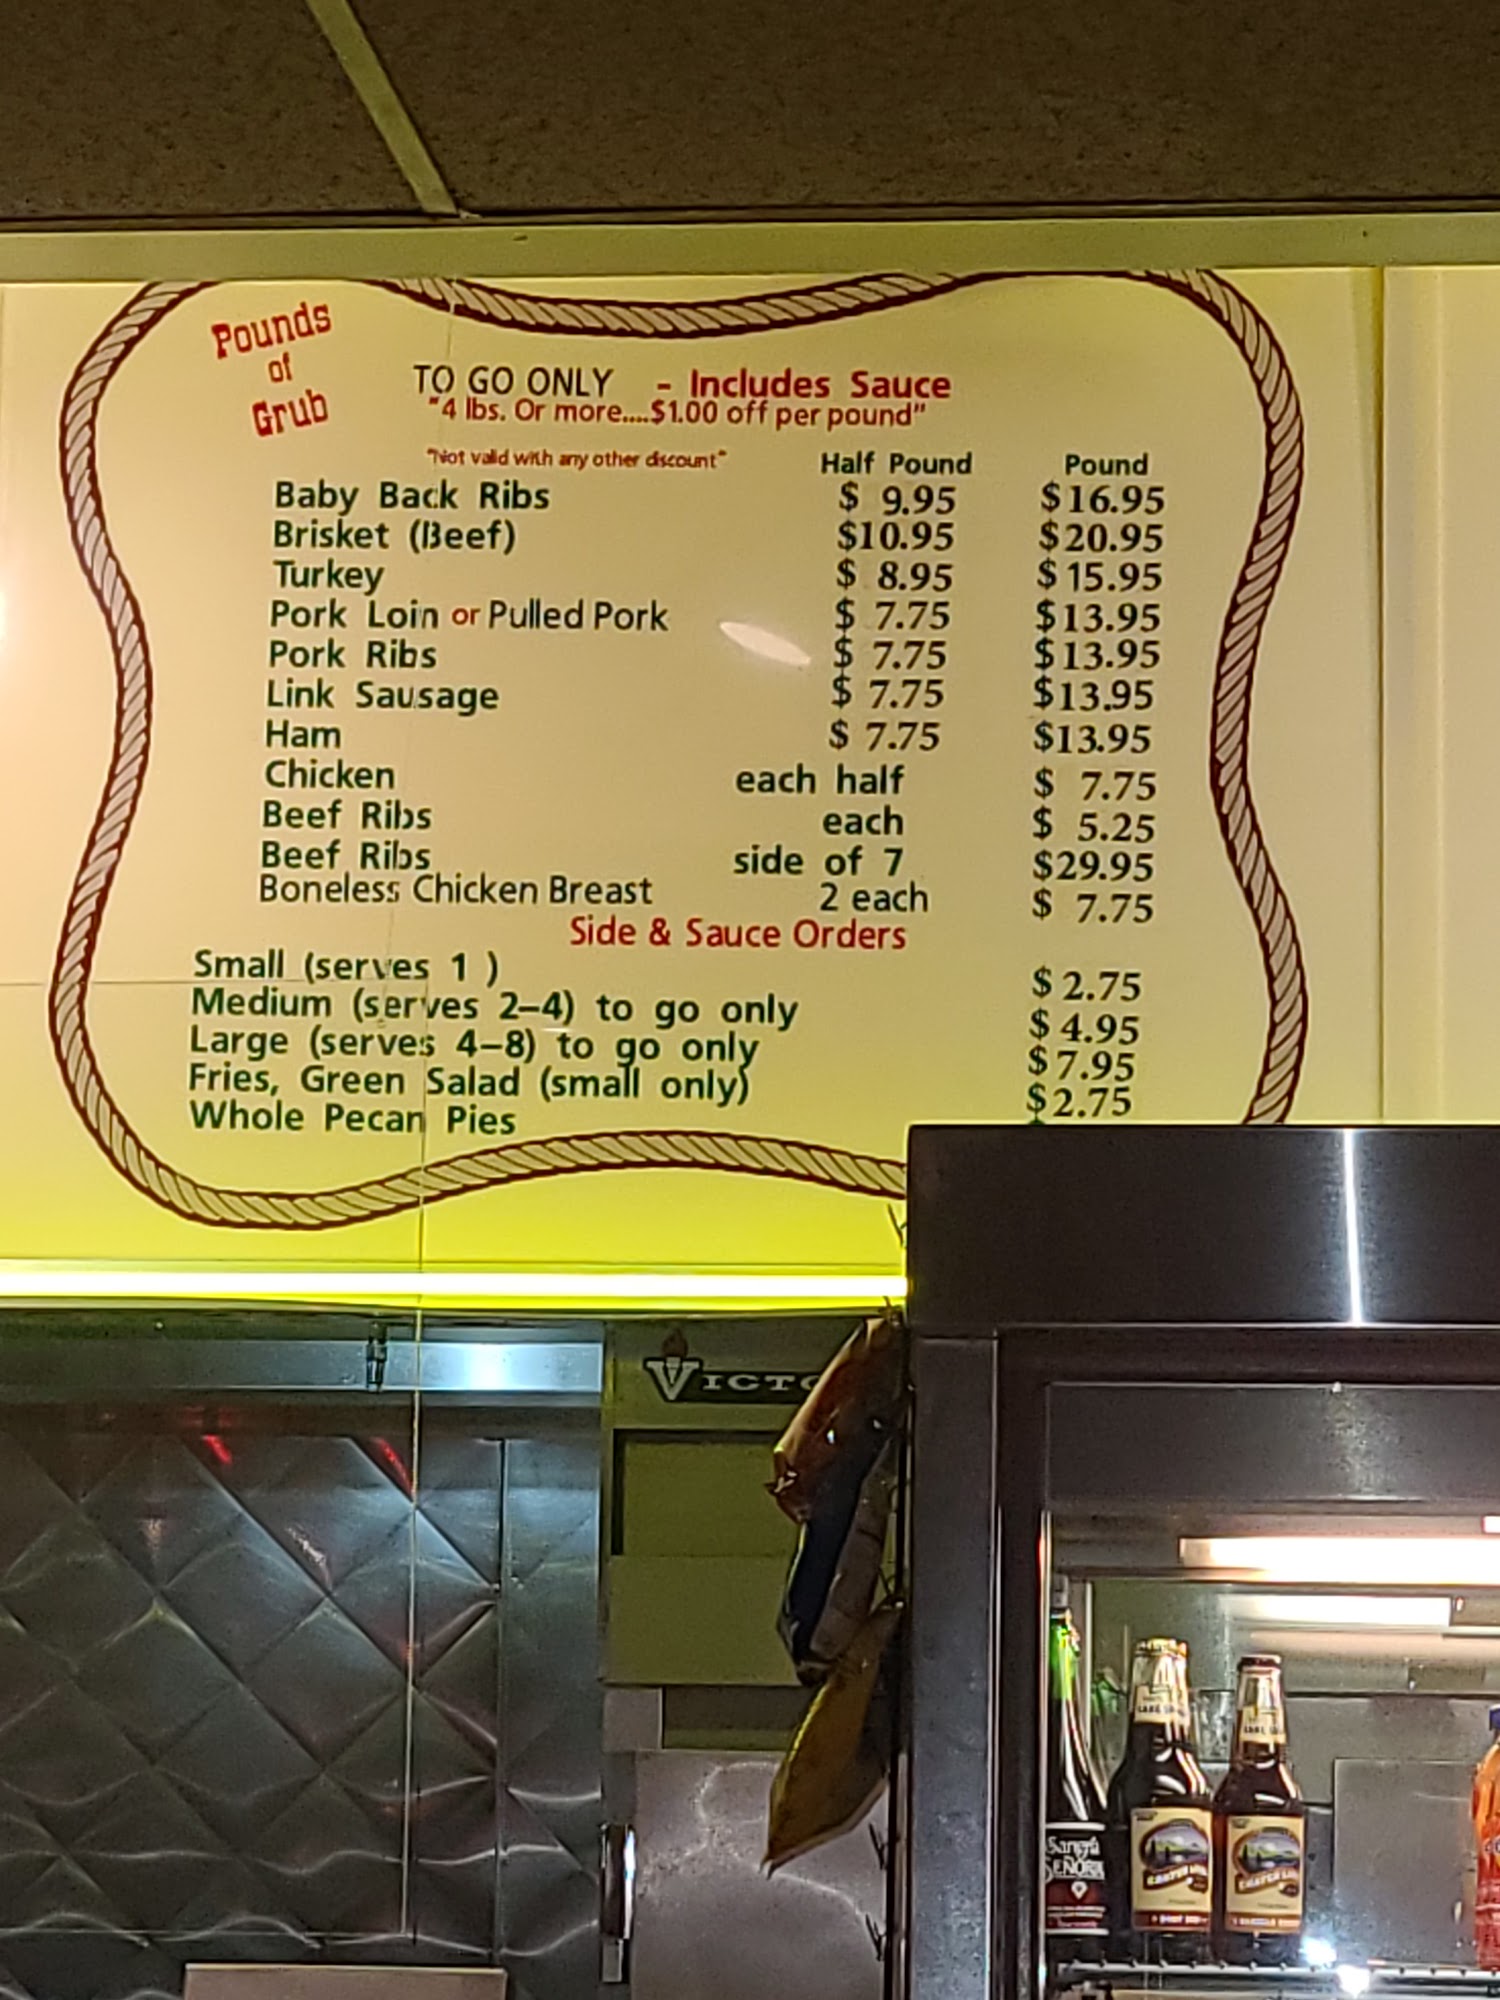 Pounds
of
Grub
TO GO ONLY - Includes Sauce
"4 lbs. Or more....$1.00 off per pound"
"Not valid with any other discount"
Half Pound Pound
Baby Back Ribs $ 9.95 $16.95
Brisket (Beef) $10.95 $20.95
Turkey $ 8.95 $15.95
Pork Loin or Pulled Pork $ 7.75 $13.95
Pork Ribs $ 7.75 $13.95
Link Sausage $ 7.75 $13.95
Ham $ 7.75 $13.95
Chicken each half $ 7.75
Beef Ribs each $ 5.25
Beef Ribs side of 7 $29.95
Boneless Chicken Breast 2 each $ 7.75
Side & Sauce Orders
Small (serves 1 ) $2.75
Medium (serves 2-4) to go only $4.95
Large (serves 4-8) to go only $7.95
Fries, Green Salad (small only) $2.75
Whole Pecan Pies
VICTO
Sangria
SEÑORA